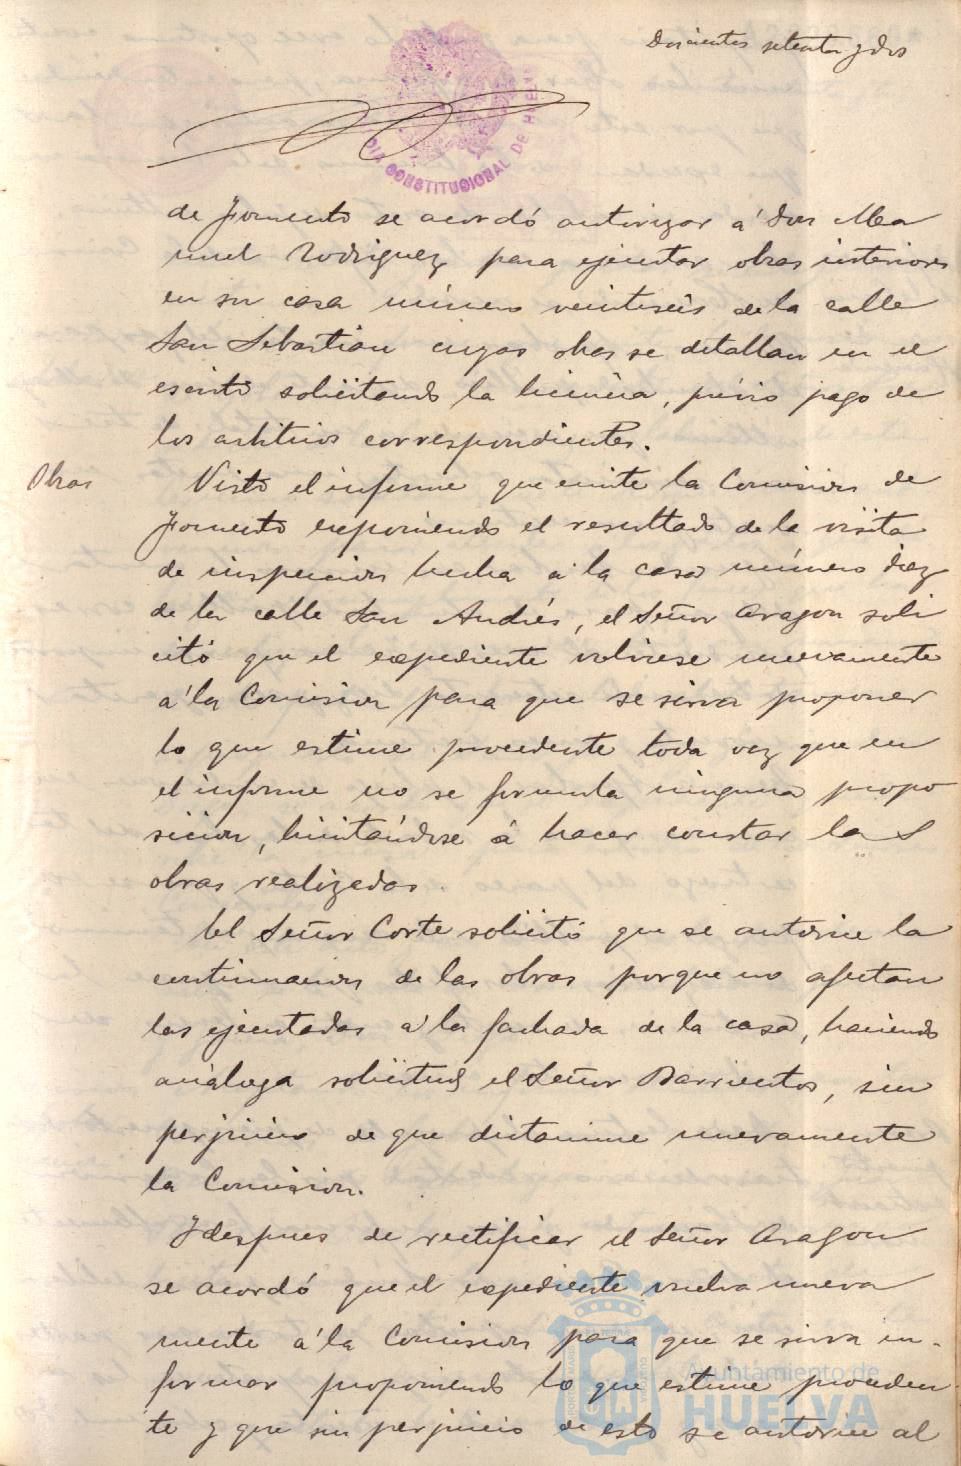 Doscientos setenta y dos
DIA CONSTITUCIONAL DE HUEL
de Fomento se acordó autorizar á Don Ma
nuel Rodriguez para ejecutar obras interiores
en su casa número veintiseis de la calle
San Sebastian cuyas obras se detallan en el
escrito solicitando la licencia, prévio pago de
los arbitrios correspondientes.
Obras
Visto el informe que emite la Comision de
Fomento exponiendo el resultado de la visita
de inspeccion hecha á la casa número diez
de la calle San Andrés, el Señor Aragon soli
citó que el expediente volviese nuevamente
á la Comision para que se sirva proponer
lo que estime procedente toda vez que en
el informe no se formula ninguna propo
sicion, limitándose á hacer constar las
obras realizadas.
El Señor Corte solicitó que se autorice la
continuacion de las obras porque no afectan
las ejecutadas á la fachada de la casa, haciendo
análoga solicitud el Señor Barrientos, sin
perjuicio de que dictamine nuevamente
la Comision.
Y despues de rectificar el Señor Aragon
se acordó que el expediente vuelva nueva
mente á la Comision para que se sirva in-
formar proponiendo lo que estime proceden
te y que sin perjuicio de esto se autorice al
Ayuntamiento de
HUELVA